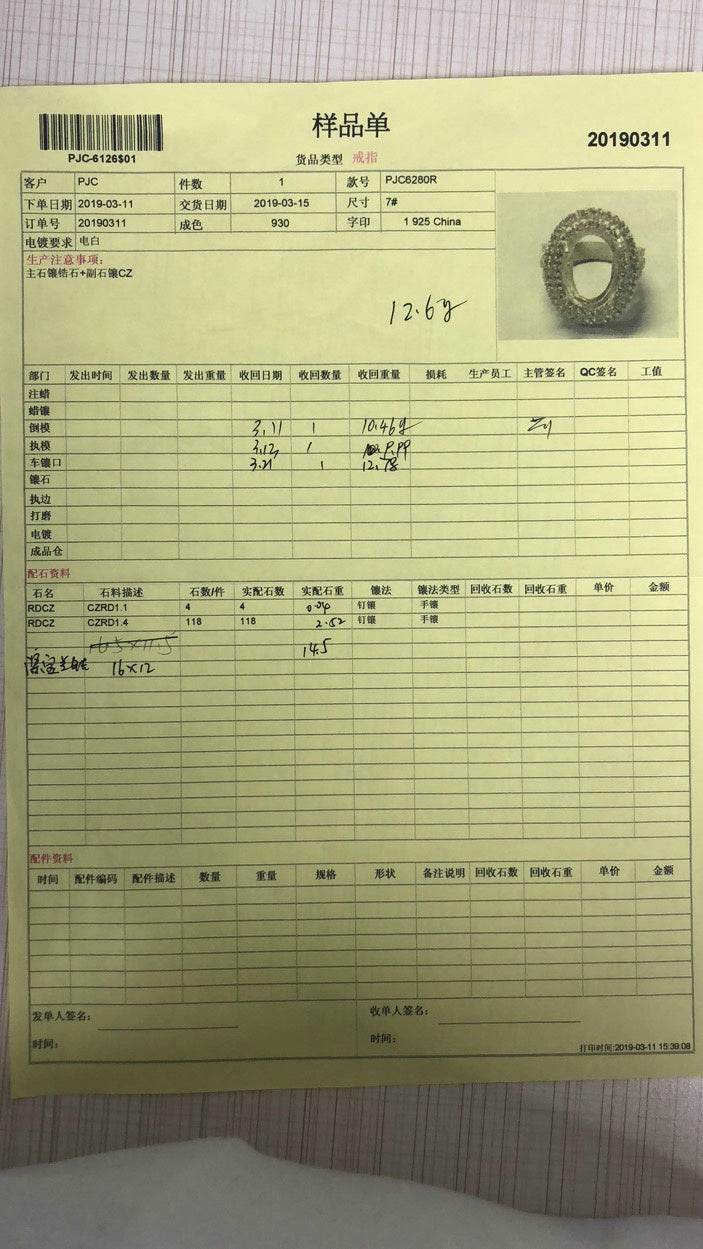 样品单
20190311
PJC-6126$01
货品类型 戒指
客户 PJC 件数 1 款号 PJC6280R
下单日期 2019-03-11 交货日期 2019-03-15 尺寸 7#
订单号 20190311 成色 930 字印 1 925 China
电镀要求 电白
生产注意事项:
主石镶锆石+副石镶CZ
12.6g
部门 发出时间 发出数量 发出重量 收回日期 收回数量 收回重量 损耗 生产员工 主管签名 QC签名 工值
注蜡
蜡镶
倒模 3.11 1 10.46g
执模 3.12 1
车镶口 3.21 1 12.78
镶石
执边
打磨
电镀
成品仓
配石资料
石名 石料描述 石数/件 实配石数 实配石重 镶法 镶法类型 回收石数 回收石重 单价 金额
RDCZ CZRD1.1 4 4 0.04 钉镶 手镶
RDCZ CZRD1.4 118 118 2.52 钉镶 手镶
16.5×11.5 14.5
16×12
配件资料
时间 配件编码 配件描述 数量 重量 规格 形状 备注说明 回收石数 回收石重 单价 金额
发单人签名: 收单人签名:
时间: 时间:
打印时间:2019-03-11 15:39:08